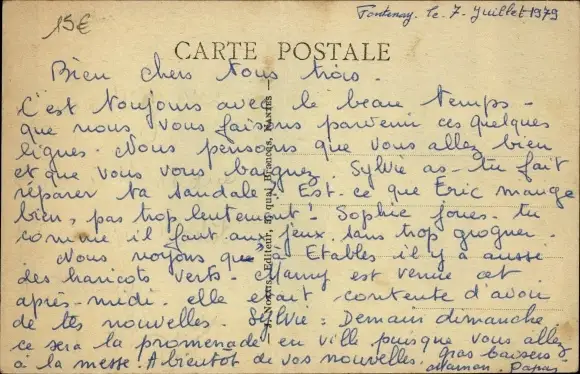 15€
Fontenay. le 7. Juillet 1979
CARTE POSTALE
Bien chers tous trois.
C'est toujours avec le beau temps -
que nous vous faisons parvenir ces quelques
lignes. Nous pensons que vous allez bien
et que vous vous baignez. Sylvie as-tu fait
réparer ta sandale? Est-ce que Eric mange
bien, pas trop lentement! Sophie joues-tu
comme il faut aux jeux. sans trop grogner.
Nous voyons que à Etables il y a aussi
des haricots verts. Mamy est venue cet
après-midi. elle était contente d'avoir
de tes nouvelles. Sylvie: Demain dimanche
ce sera la promenade en ville puisque vous allez
à la messe. A bientôt de vos nouvelles. gros baisers.
maman. Papa
Nozais, Editeur, 8, quai Brancas, NANTES